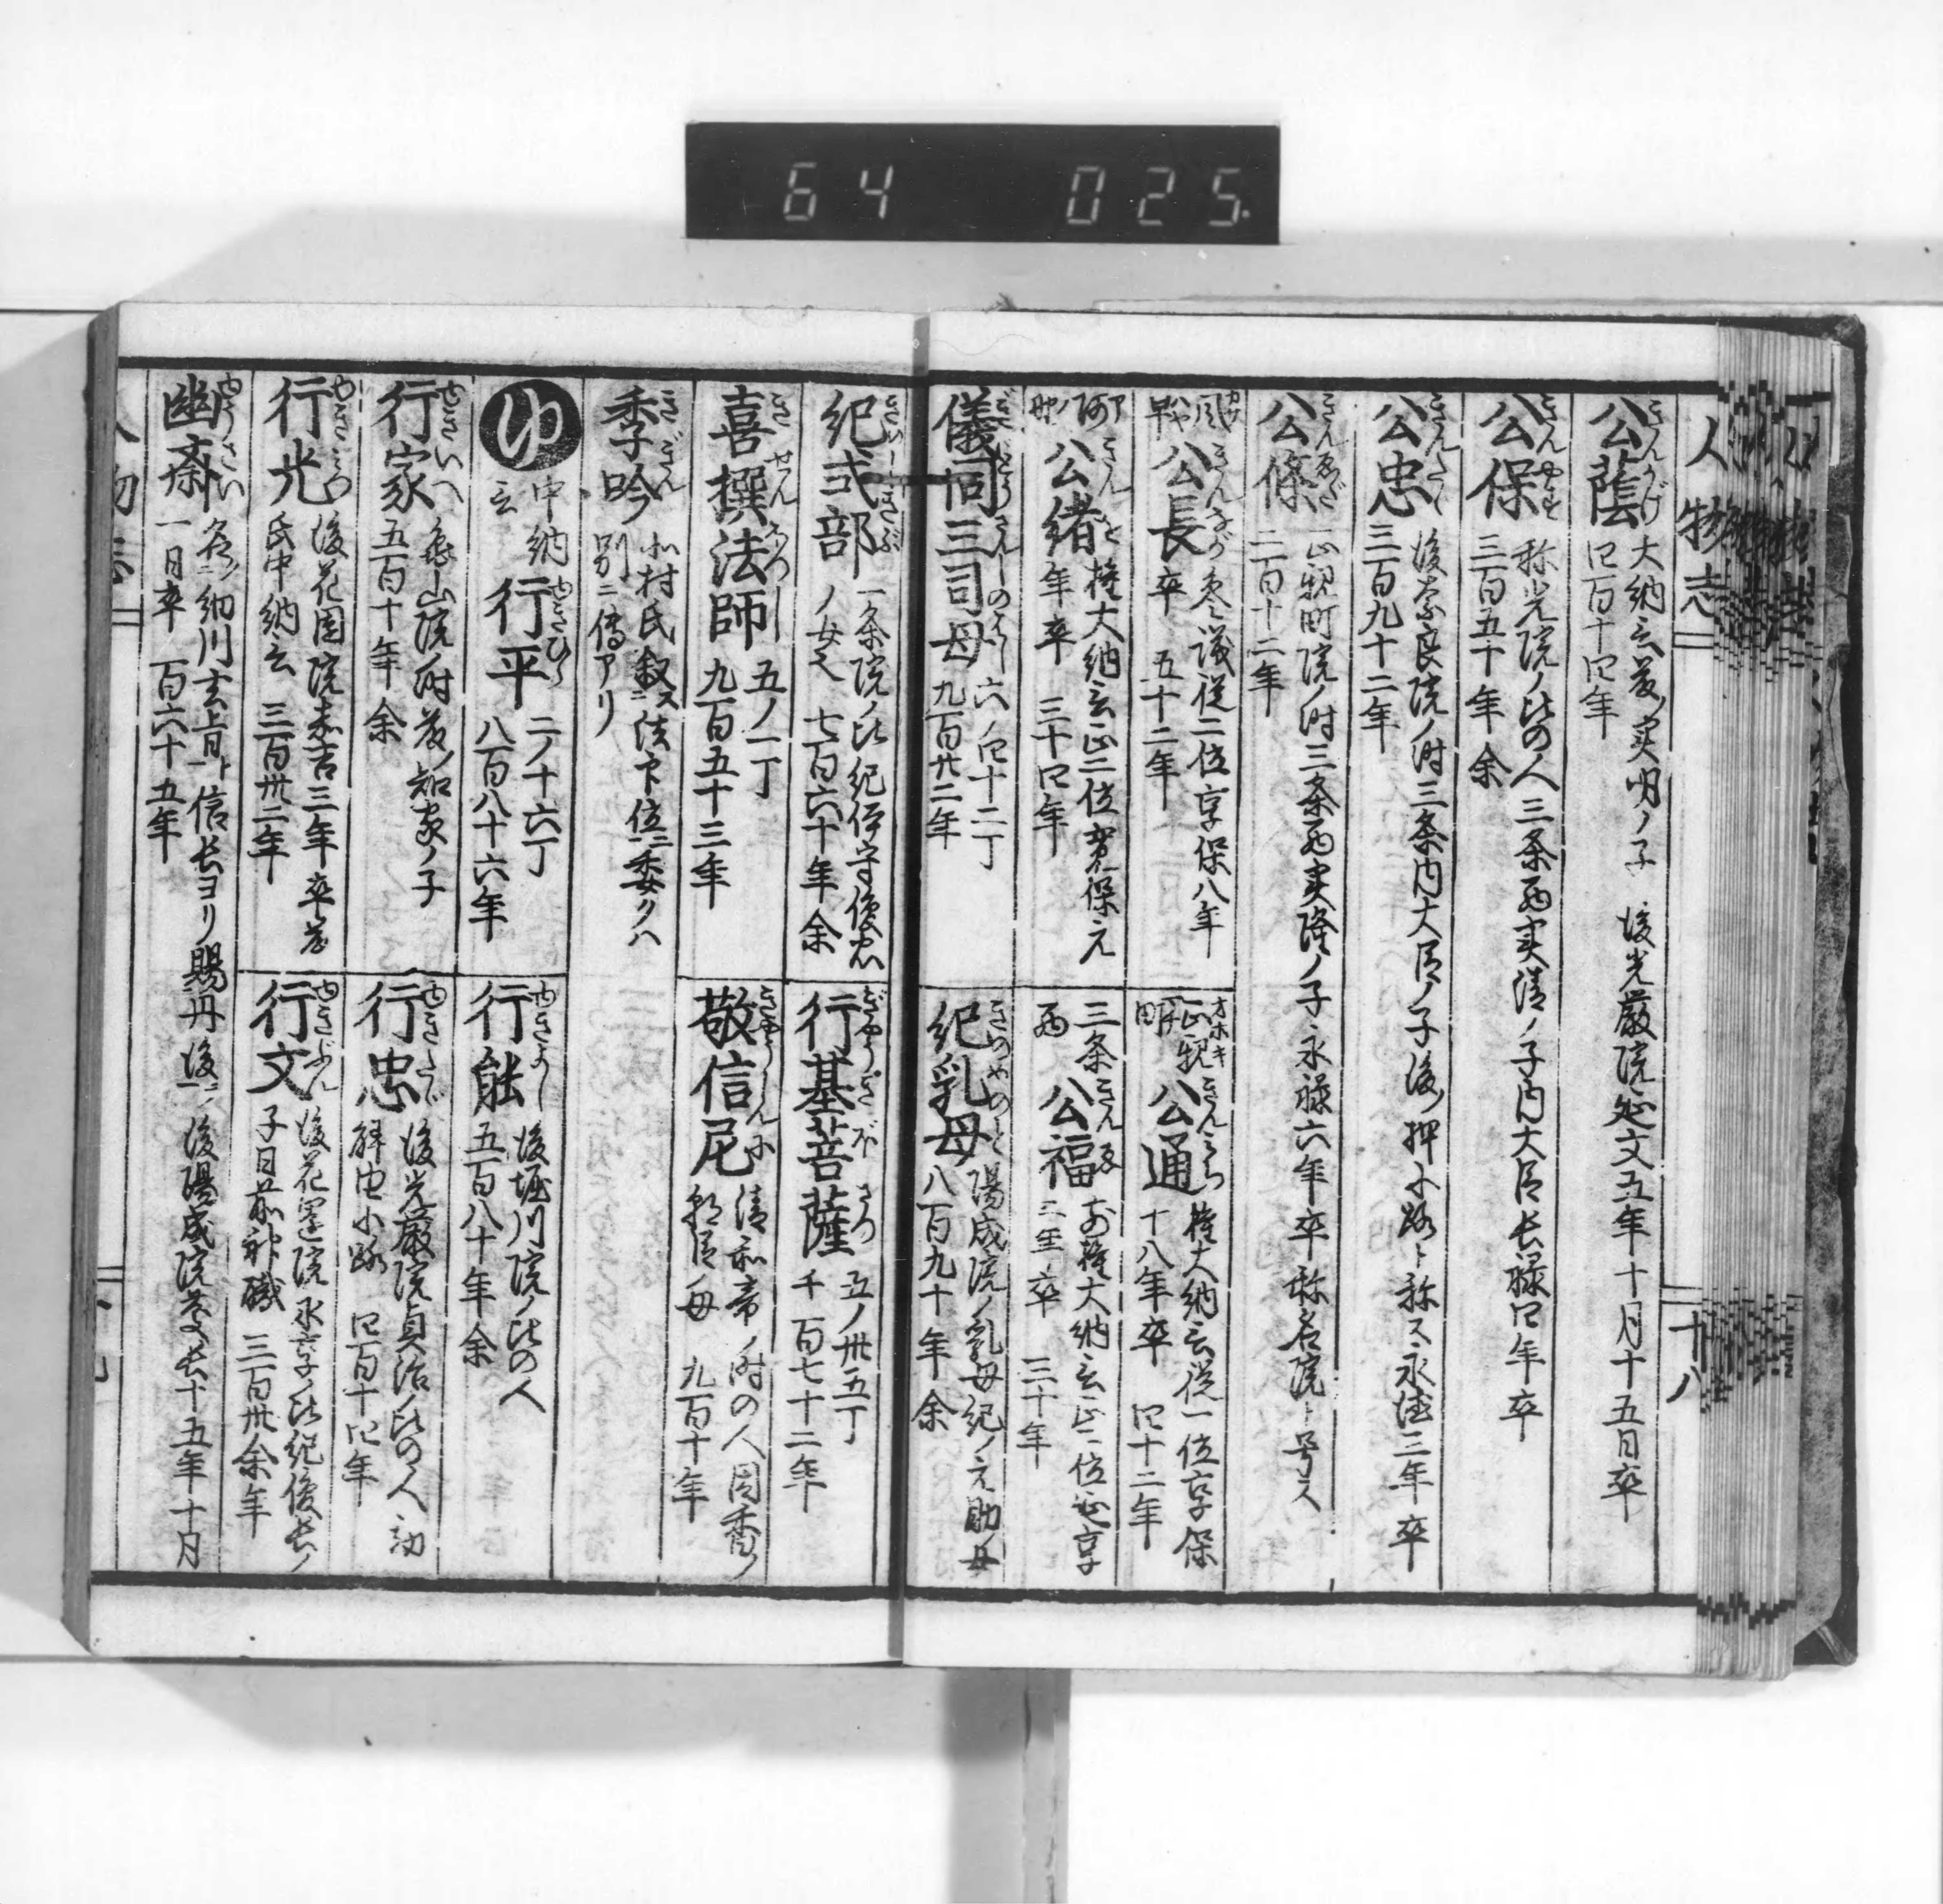 64 025
人物志
十八
公蔭 きんかげ
大納言為実明ノ子 後光厳院延文五年十月十五日卒
四百十四年
公保 きんやす
称光院ノ比の人三条西実清ノ子内大臣長禄四年卒
三百五十年余
公忠 きんたゞ
後奈良院ノ時三条内大臣ノ子後ノ押小路ト称ス永徳三年卒
三百九十二年
公條 きんゑだ
正親町院ノ時三条西実隆ノ子永禄六年卒称名院ト号ス
二百十二年
風早 公長 きんなが
参議従二位享保八年
卒 五十二年
正親町 公通 きんみち
権大納言従一位享保
十八年卒 四十二年
阿野 公緒 きんを
権大納言正二位寛保元
年卒 三十四年
三条西 公福 きんふく
前権大納言正二位延享
二至卒 三十年
儀同三司母 ぎどうさんしのはゝ
六ノ四十二丁
九百廿二年
紀乳母 きのめのと
陽成院ノ乳母紀ノ元助ノ母
八百九十年余
紀式部 きのしきぶ
一条院ノ比紀伊守俊忠
ノ女也 七百六十年余
行基菩薩 ぎやうぎぼさつ
五ノ卅五丁
千百七十二年
喜撰法師 きせんほつし
五ノ一丁
九百五十三年
敬信尼 きやうしんに
清和帝ノ時の人因香ノ
朝臣ノ母 九百十年
季吟 きぎん
北村氏叙ス法印位ニ委クハ
別ニ傳アリ
ゆ
中納言 行平 ゆきひら
二ノ十六丁
八百八十六年
行能 ゆきよし
後堀川院ノ比の人
五百八十年余
行家 ゆきいへ
亀山院ノ時為ノ知家ノ子
五百十年余
行忠 ゆきたゞ
後光厳院貞治ノ比の人勘
解由小路 四百十四年
行光 ゆきみつ
後花園院嘉吉三年卒為
氏中納言 三百卅二年
行文 ゆきぶん
後花園院永享ノ比紀俊長ノ
子日前神職 三百卅余年
幽斎 ゆうさい
名ハ細川玄旨ト信長ヨリ賜丹後ニ後陽成院慶長十五年十月
一日卒 百六十五年
人物志